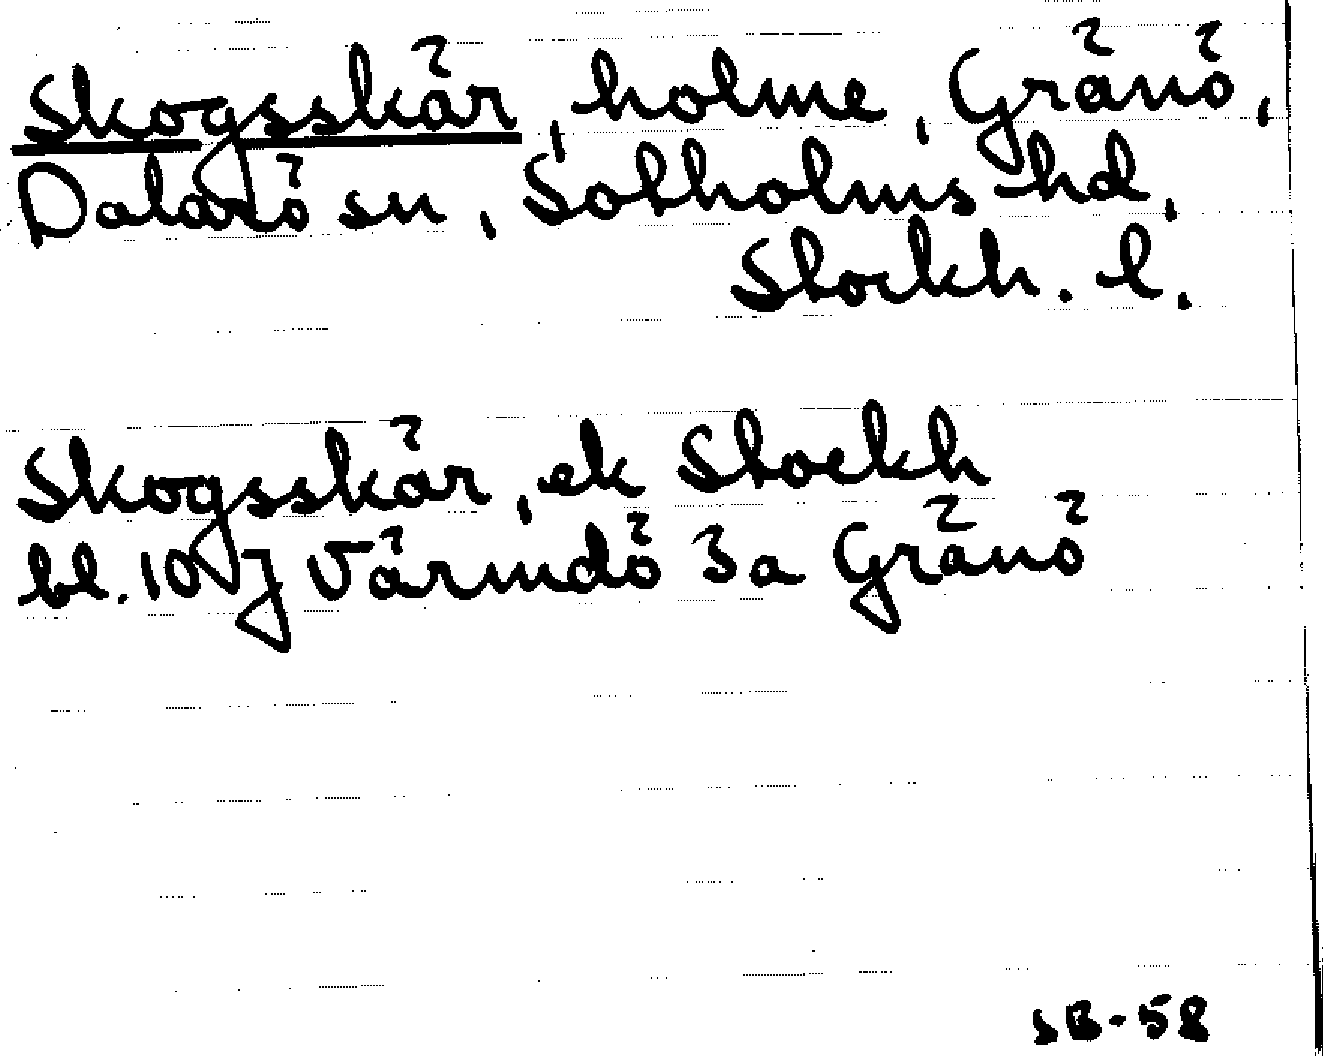 Skogsskär, holme, Gränö,
Dalarö sn, Sotholms hd,
Stockh. l.
Skogsskär, ek Stockh
bl. 10 VJ Värmdö 3a Gränö
SB-58